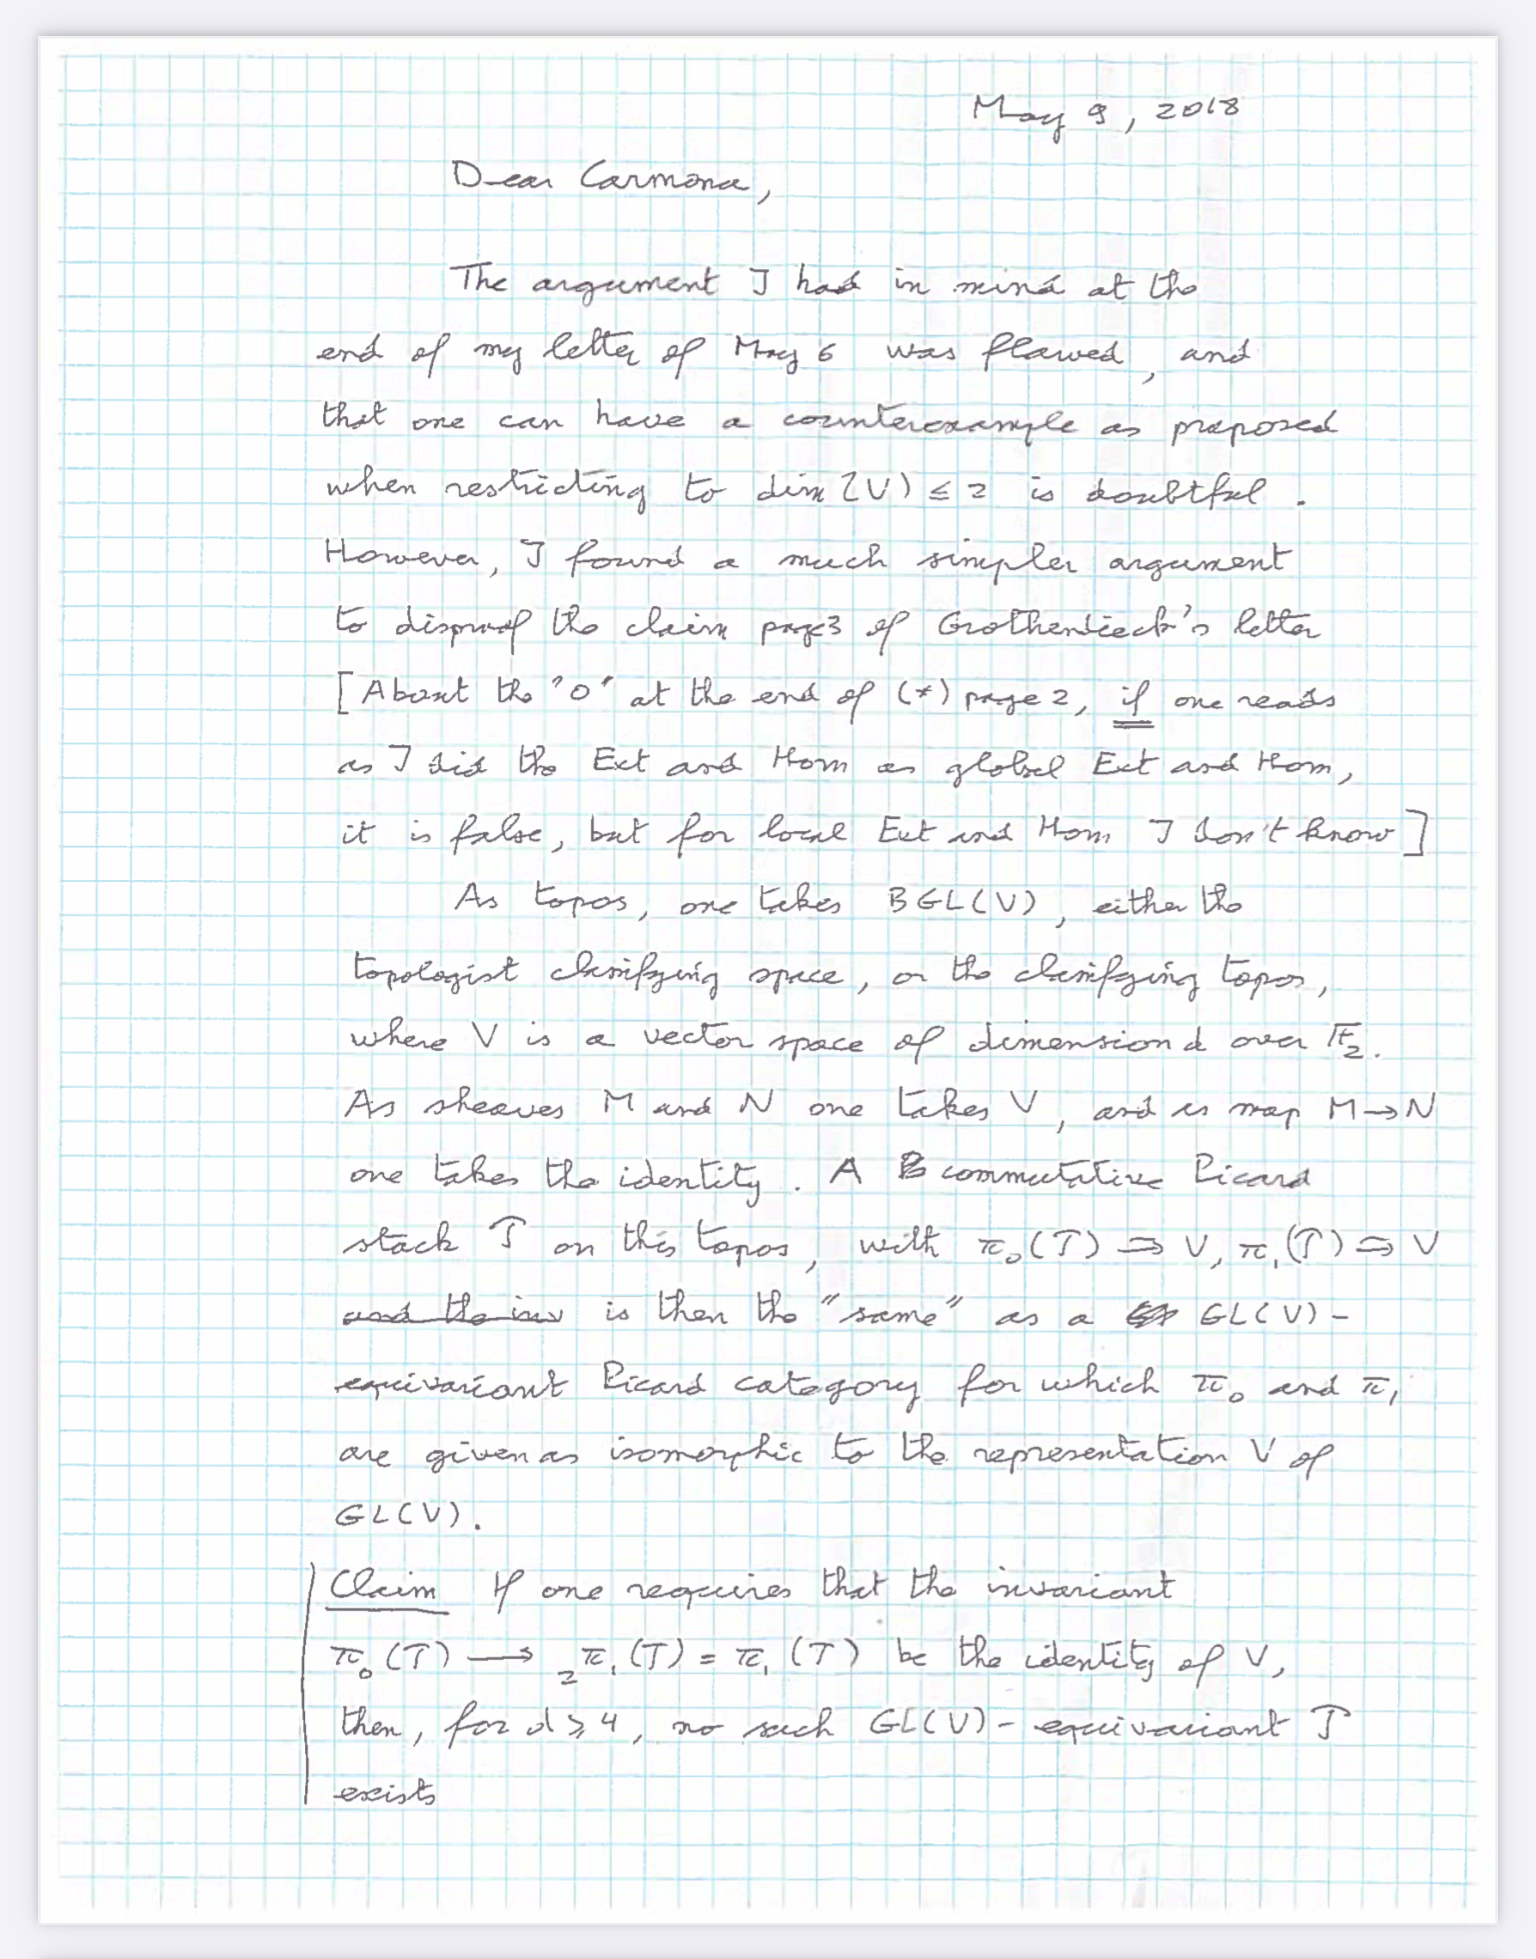 May 9, 2018
Dear Carmona,
The argument I had in mind at the
end of my letter of May 6 was flawed, and
that one can have a counterexample as proposed
when restricting to dim(V) ≤ 2 is doubtful.
However, I found a much simpler argument
to disproof the claim page3 of Grothendieck's letter
[About the "0" at the end of (*) page 2, if one reads
as I did the Ext and Hom as global Ext and Hom,
it is false, but for local Ext and Hom I don't know]
As topos, one takes BGL(V), either the
topologist classifying space, or the classifying topos,
where V is a vector space of dimension d over F₂.
As sheaves M and N one takes V, and as map M→N
one takes the identity. A commutative Picard
stack T on this topos, with π₀(T) ⥲ V, π₁(T) ⥲ V
and the inv is then the "same" as a GL(V)-
equivariant Picard category for which π₀ and π₁
are given as isomorphic to the representation V of
GL(V).
Claim If one requires that the invariant
π₀(T) ⟶ ₂π₁(T) = π₁(T) be the identity of V,
then, for d ⩾ 4, no such GL(V)-equivariant T
exists